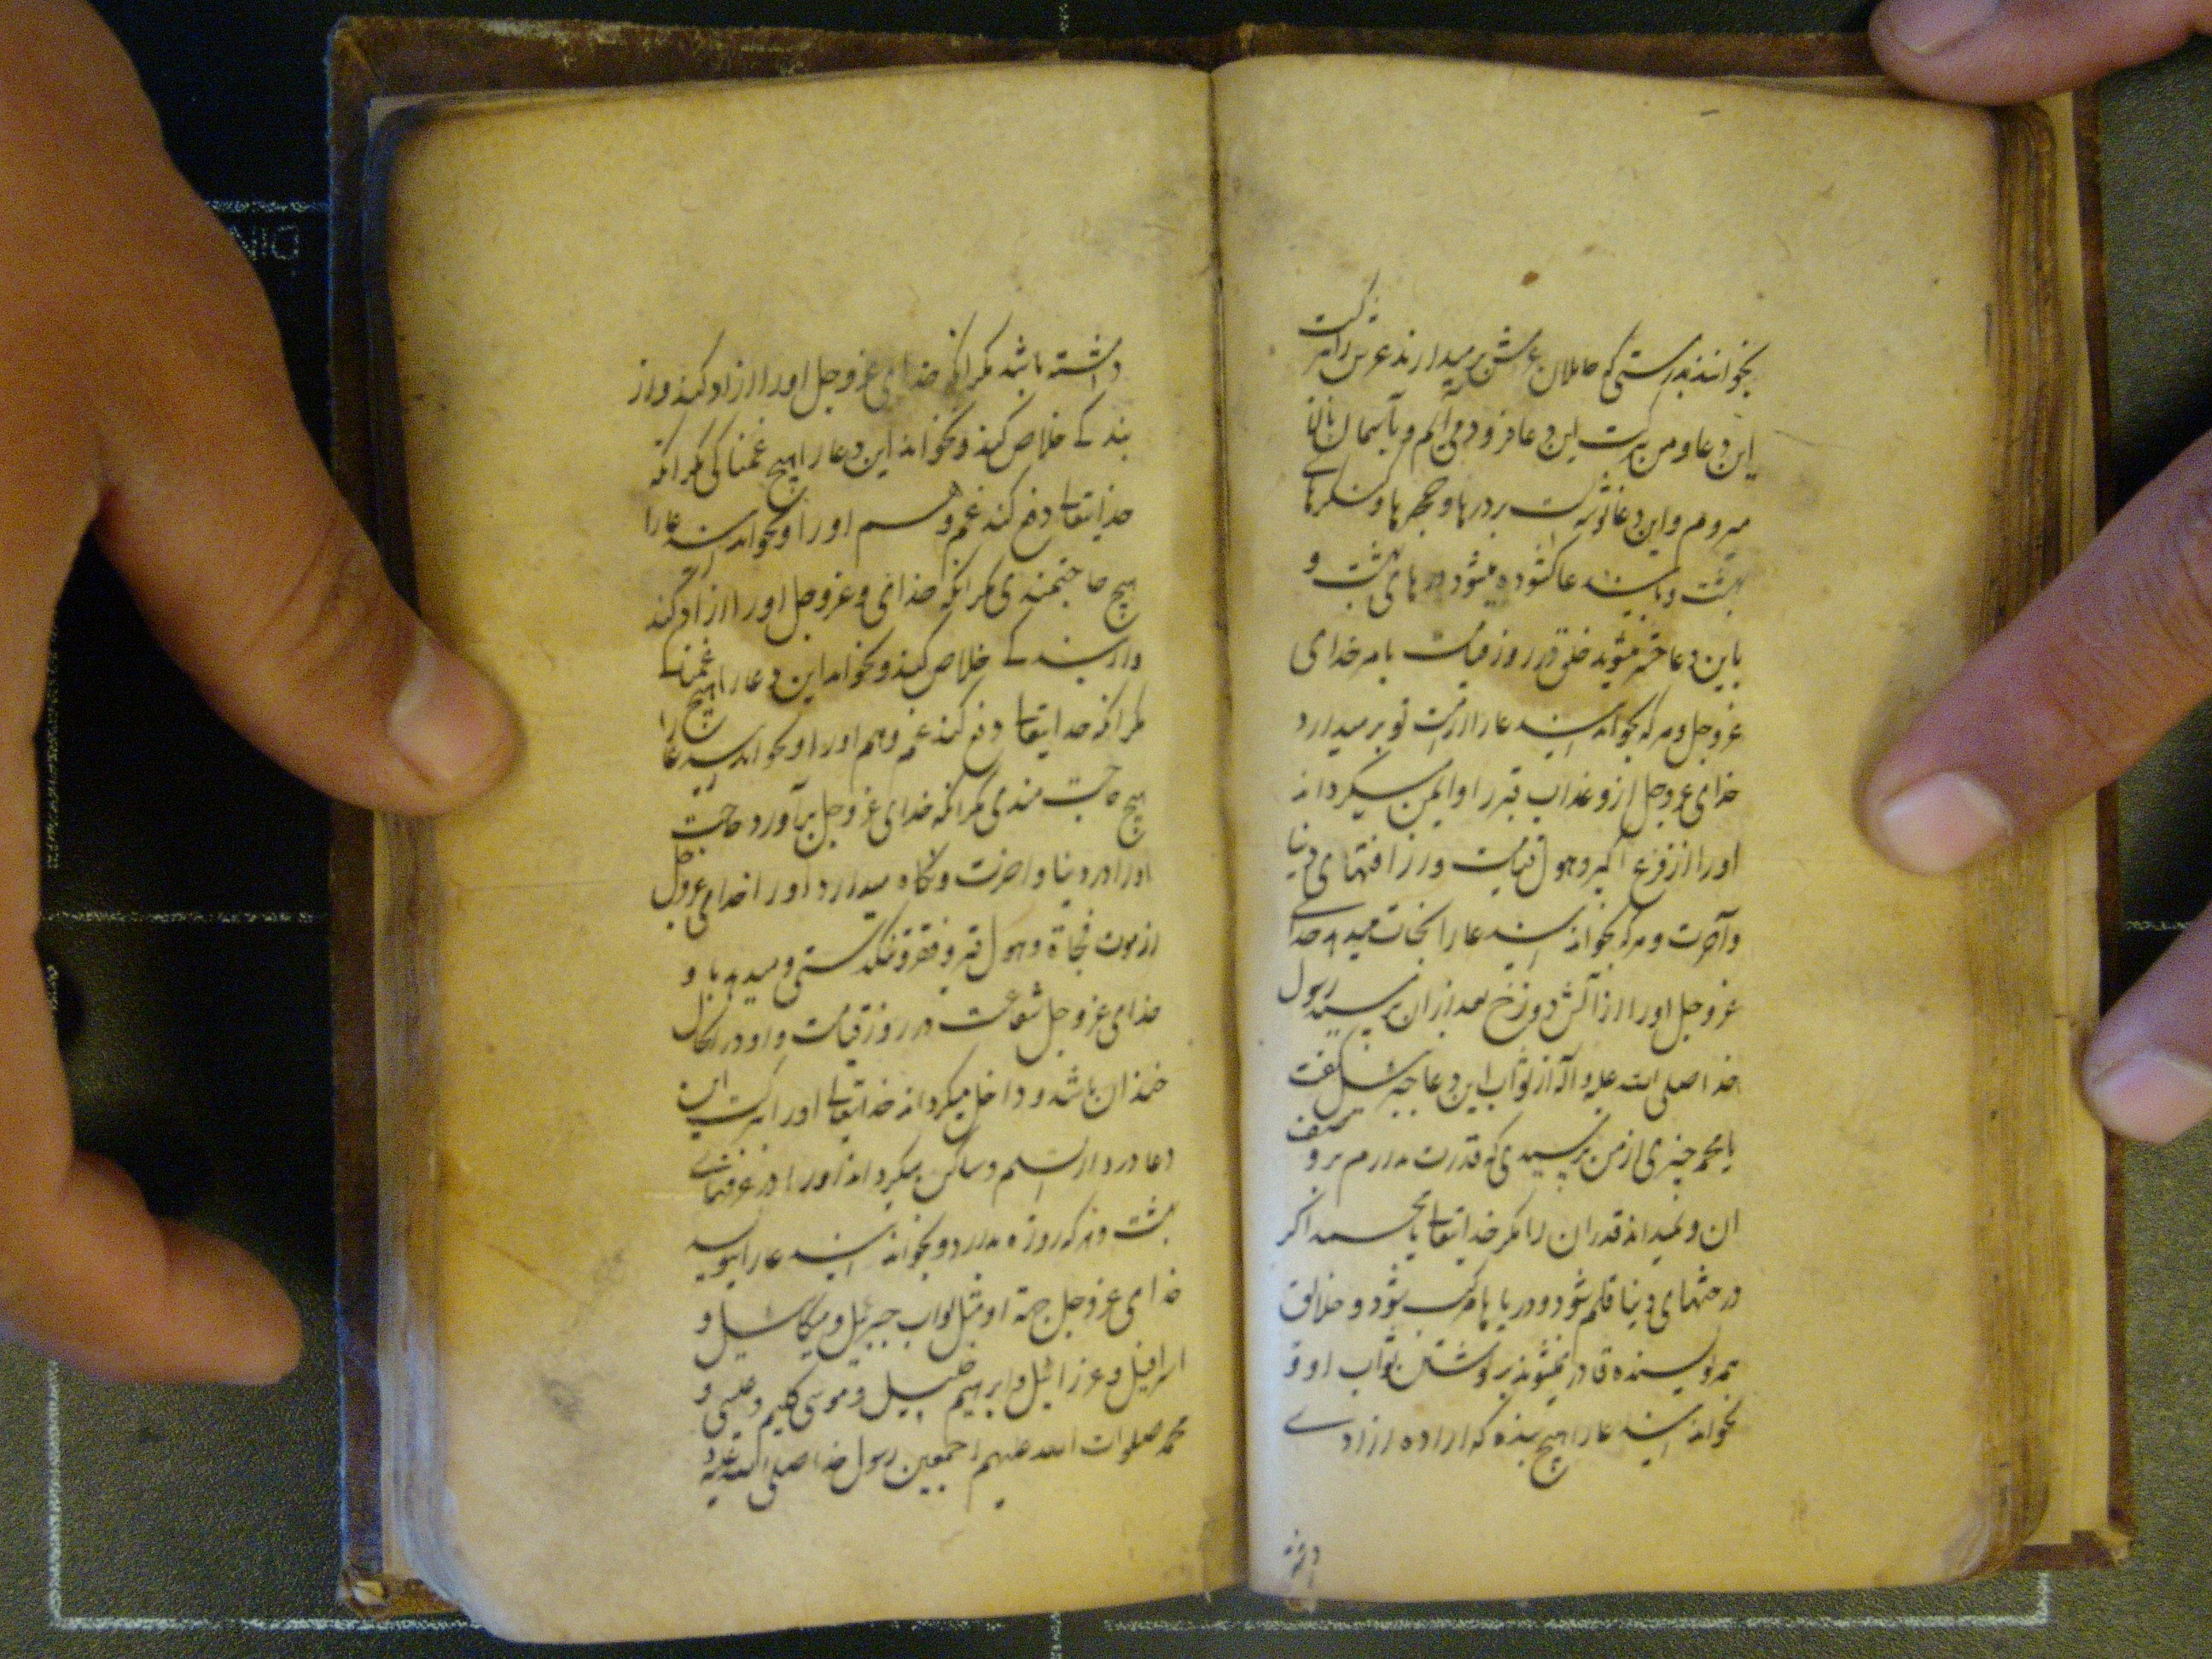 بخوانند بدرستی که حاملان عرش برمیدارند عرش را ببرکت
این دعا و من ببرکت این دعا فرود می آیم و بآسمان بالا
میروم و این دعا نوشته است بر درها و حجرها و کنکرهای
بهشت و باین دعا کشوده میشود درهای بهشت و
باین دعا حشر میشوند خلق در روز قیامت بامر خدای
عزوجل و هرکه بخواند این دعا را از امت تو برمیدارد
خدای عزوجل ازو عذاب قبر را و ایمن میکرداند
او را از فزع اکبر و هول قیامت و از افتهای دنیا
و آخرت و هرکه بخواند این دعا را نجات میدهد خدای
عزوجل او را از آتش دوزخ بعد از آن پرسید رسول
خدا صلی الله علیه و آله از ثواب این دعا جبرئیل گفت
یا محمد چیزی از من پرسیدی که قدرت ندارم بر وصف
ان و نمیداند قدر ان را مکر خدایتعالی یا محمد اکر
درختهای دنیا قلم شود و دریاها مرکب شود و خلائق
همه نویسنده قادر نمیشوند بر نوشتن ثواب او و
نخواند این دعا را هیچ بنده که اراده ازادی
داشته
داشته باشد مکر انکه خدای عزوجل او را ازاد کند و از
بندکی خلاص کند و نخواند این دعا را هیچ غمناکی مکر انکه
خدایتعالی دفع کند غم و هم او را و نخواند این دعا را
هیچ حاجتمندی مکر انکه خدای عزوجل او را ازاد کند
و از بندکی خلاص کند و نخواند این دعا را هیچ غمناکی
مکر انکه خدایتعالی دفع کند غم و هم او را و نخواند این دعا را
هیچ حاجت مندی مکر انکه خدای عزوجل برآورد حاجت
او را در دنیا و اخرت و نکاه میدارد او را خدای عزوجل
از موت فجاة و هول قبر و فقر و تنکدستی و میدهد باو
خدای عزوجل شفاعت در روز قیامت و او در انحال
خندان باشد و داخل میکرداند خدایتعالی او را ببرکت این
دعا در دار السلم و ساکن میکرداند او را در غرفهای
بهشت و هرکه روزه بدارد و بخواند این دعا را بنویسد
خدای عزوجل جهة او مثل ثواب جبرئیل و میکائیل و
اسرافیل و عزرائیل و ابرهیم خلیل و موسی کلیم و عیسی و
محمد صلوات الله علیهم اجمعین رسول خدا صلی الله علیه و